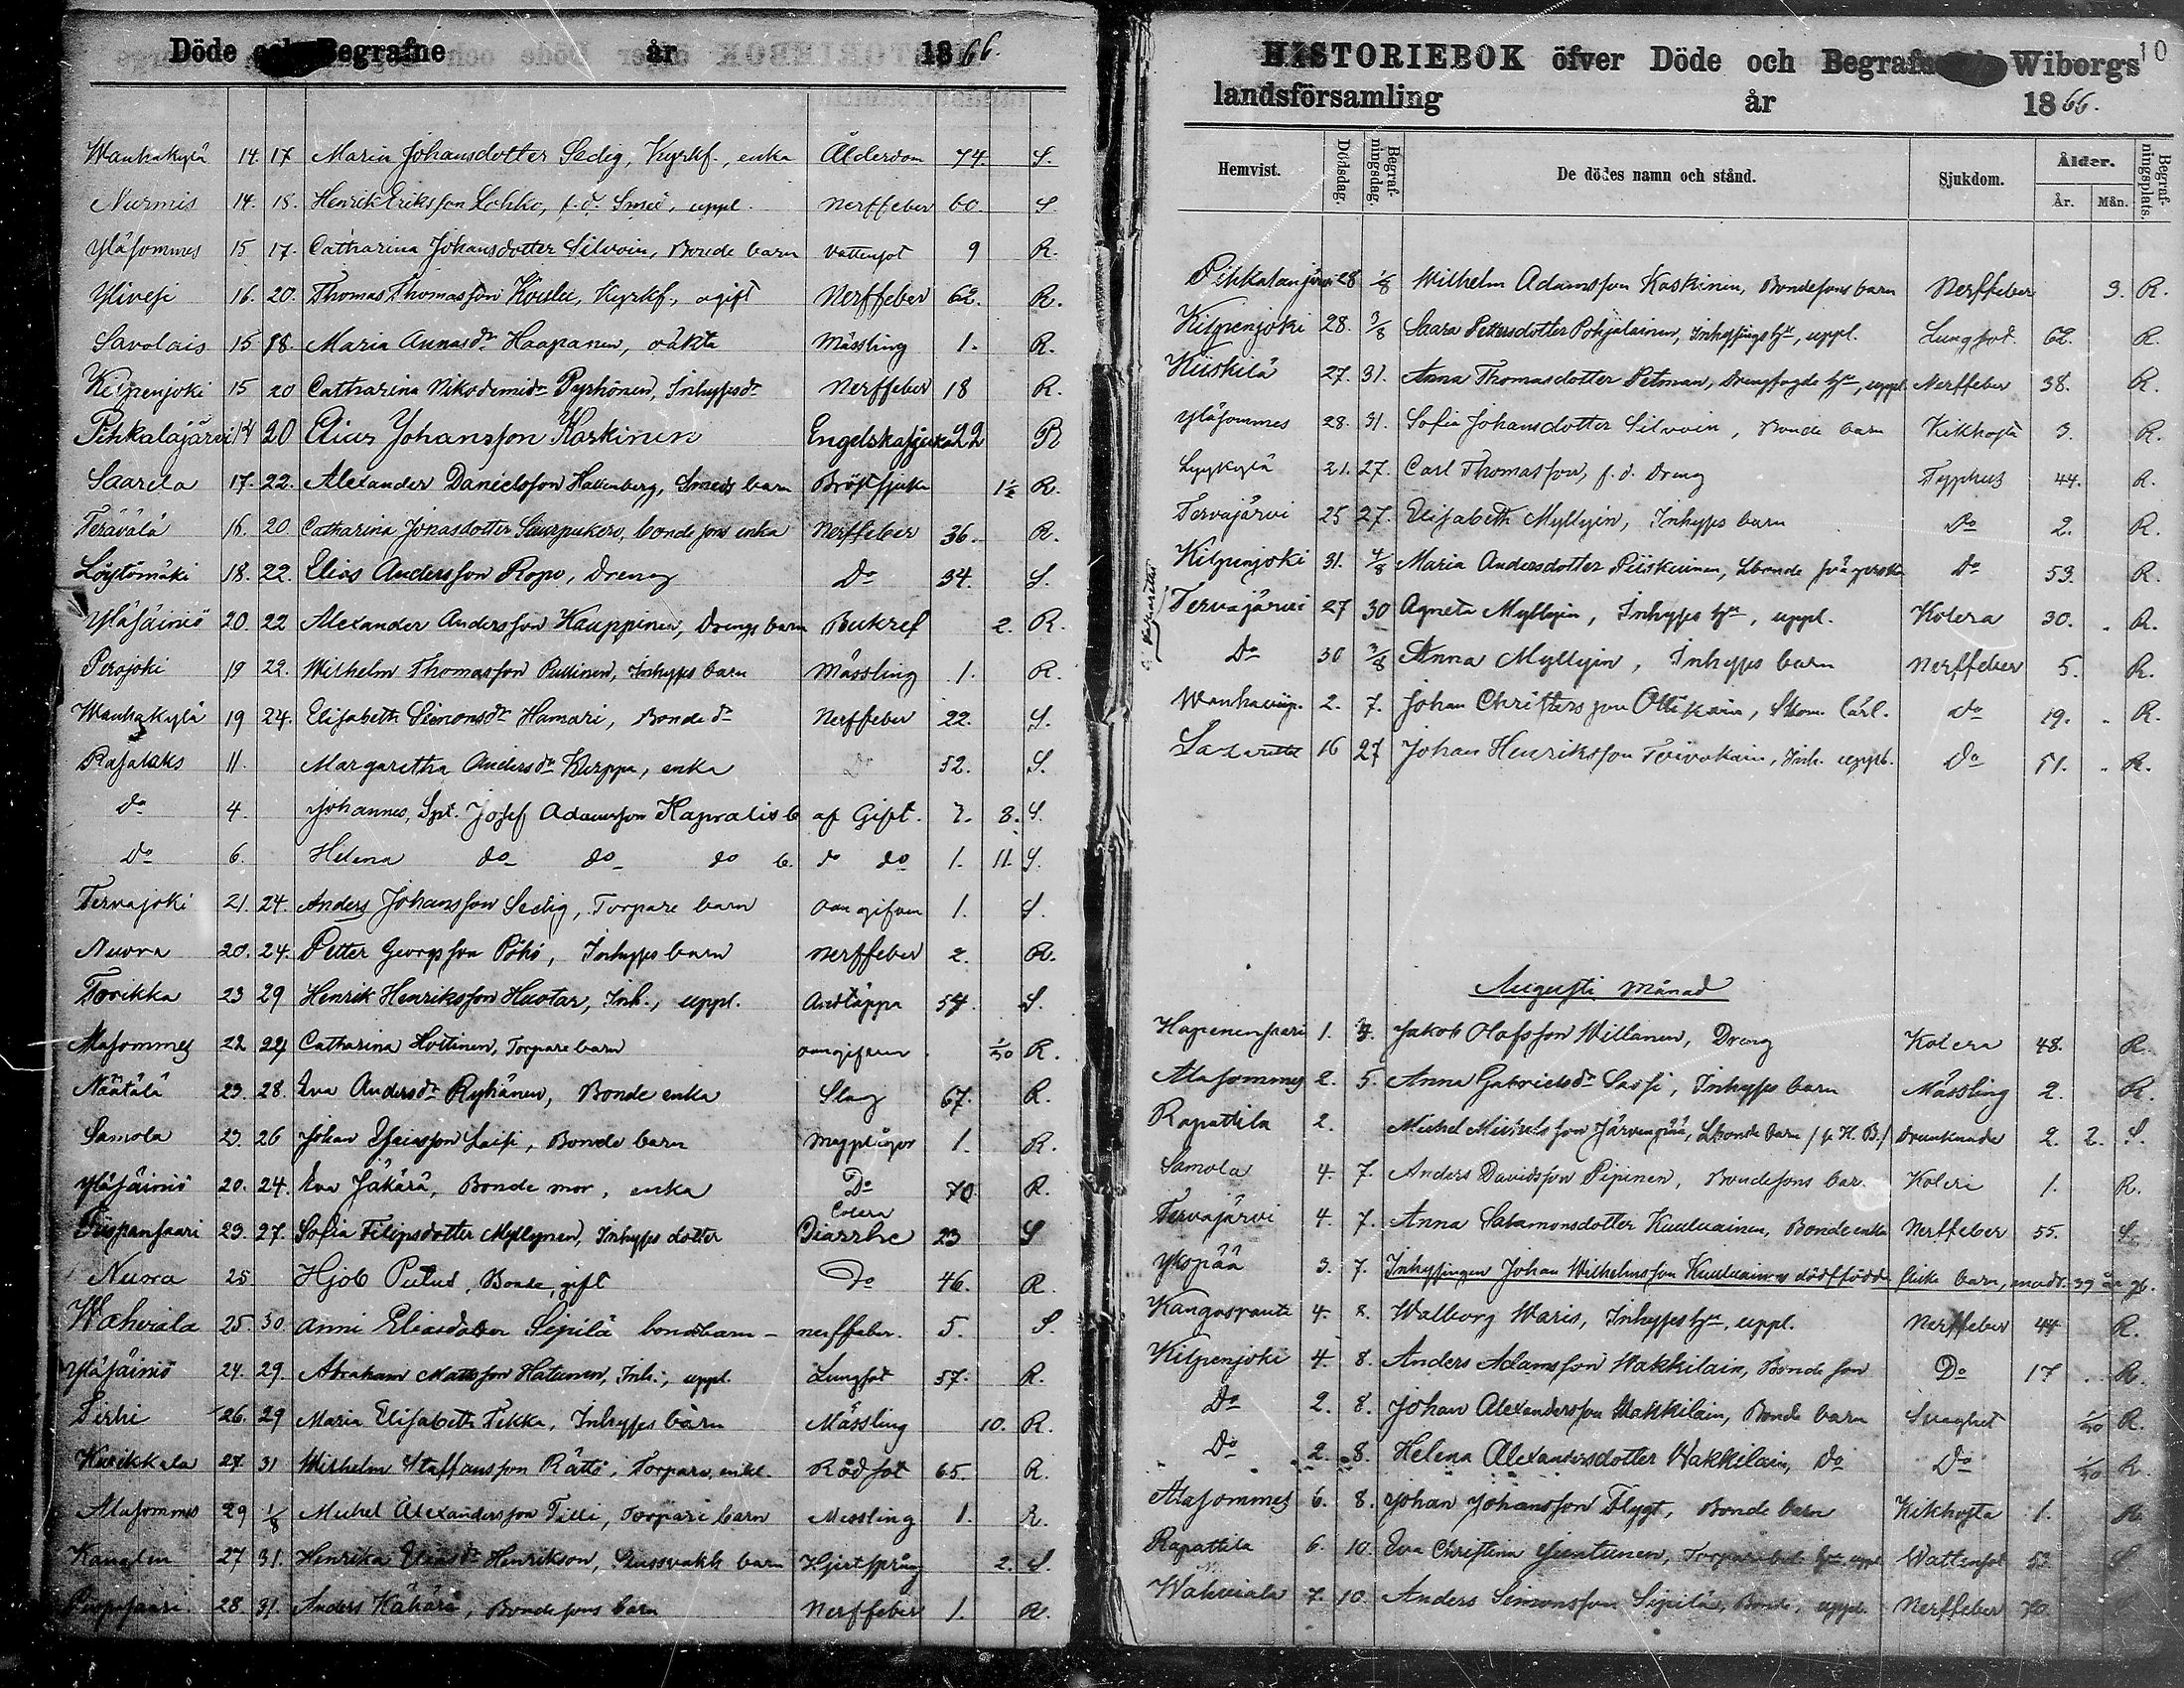 Döde och Begrafne år 1866.
Wanhakylä 14. 17 Maria Johansdotter Sedig, Kyrkf., enka Ålderdom 74. S.
Nurmis 14. 18. Henrik Eriksson Lohko, f.d. Smed, uppl. Nerffeber 60. S.
Yläsommes 15 17. Catharina Johansdotter Silvoin, Bonde barn Vattusot 9 R.
Ylivesi 16. 20. Thomas Thomasson Kouki, Kyrkf., ogift Nerffeber 62. R.
Savolais 15 18. Maria Annasdr Haapanen, oäkta Mässling 1. R.
Kilpenjoki 15 20 Catharina Nikodemidr Pyrhönen, Inhysesdr Nerffeber 18 R.
Pihkalajärvi 14 20 Elias Johansson Kaskinen Engelska sjukan 22 R
Saarela 17. 22. Alexander Danielsson Hallenberg, Smeds barn Bröstsjuka 1½ R.
Terävälä 16. 20. Catharina Jonasdotter Saurpukero, bondesons enka Nerffeber 36. R.
Löytömäki 18. 22. Elias Andersson Ropo, Dreng Do 34. S.
Yläsäiniö 20. 22 Alexander Andersson Kauppinen, Drengs barn Bukref 2. R.
Perojoki 19 22. Wilhelm Thomasson Pullinen, Inhyses barn Mässling 1. R.
Wanhakylä 19 24. Elisabeth Simonsdr Hamari, Bonde dr Nerffeber 22. S.
Rasalaks 11. Margaretha Andersdr Kurppa, enka Do 52. S.
do 4. Johannes, Spt. Josef Adamsson Kapralis b af Gift. 7. 8. S.
do 6. Helena do do do b. do do 1. 11. S.
Tervajoki 21. 24. Anders Johansson Sedig, Torpare barn oangifven 1. S.
Nuora 20. 24. Petter Georgsson Pöhö, Inhyses barn Nerffeber 2. R.
Torikka 23 29 Henrik Henriksson Huotar, Inh., uppl. Andtäppa 54. S.
Alasommes 22 24 Catharina Hottinen, Torpare barn oangifven 1/30 R.
Näätälä 23. 28. Eva Andersdr Ryhänen, Bonde enka Slag 67. R.
Samola 23. 26 Johan Esaiasson Laisi, Bonde barn Magplågor 1. R.
Yläsäiniö 20. 24. Eva Jäkärä, Bonde mor, enka Do 70. R.
Tiispansaari 23. 27. Sofia Filipsdotter Myllynen, Inhyses dotter Colera Diarrhe 23 S
Nuora 25. Hjob Putus, Bonde, gift Do 46. R.
Wahviala 25. 30 Anni Eliasdotter Sipilä bondbarn nerffeber. 5. S.
Yläsäiniö 24. 29. Abraham Mattsson Hatunen, Inh., uppl. Lungsot 57. R.
Sirki 26. 29 Maria Elisabeth Tekka, Inhyses barn Mässling 10. R.
Kuikkala 27 31 Wilhelm Staffansson Rättö, Torpare, enkl. Rödsot 65. R.
Alasommes 29 1/8 Michel Alexandersson Tilli, Torpare barn Messling 1. R.
Kanalen 27 31. Henrika Eliasdr Henrikson, Slussvakts barn Hjertsprång 2. S.
28. 31. Anders Kähärä, Bondesons barn Nerffeber 1. R.
HISTORIEBOK öfver Döde och Begrafne Wiborgs 10
landsförsamling år 1866.
Hemvist. Dödsdag. Begrafningsdag. De dödes namn och stånd. Sjukdom. Ålder. År. Mån. Begrafningsplats.
Pihkalanjärvi 28 1/8 Wilhelm Adamsson Kaskinen, Bondesons barn Nerffeber 3. R.
Kilpenjoki 28. 3/8 Saara Pettersdotter Pohjalainen, Inhysings hu, uppl. Lungsot. 62. R.
Kiiskilä 27. 31. Anna Thomasdotter Petman, Drengfogde hu, uppl. Nerffeber 38. R.
Yläsommes 28. 31. Sofia Johansdotter Silvoin, Bonde barn Kikhosta 3. R.
Lyykylä 21. 27. Carl Thomasson, f.d. Dreng Typhus 44. R.
Tervajärvi 25 27. Elisabeth Myllyin, Inhyses barn Do 2. R.
Kilpenjoki 31. 4/8 Maria Andersdotter Piiskuinen, Lbonde svägerska Do 53. R.
Tervajärvi 27 30 Agneta Myllyin, Inhyses hu, uppl. Kolera 30. R.
Do 30 3/8 Anna Myllyin, Inhyses barn Nerffeber 5. R.
2. 7. Johan Christersson Ollikain, Skom. lärl. do 19. R.
Lazarettet 16 27 Johan Henriksson Toivokain, Inh. uppl. Do 51. R.
Augusti Månad
Hapenensaari 1. 3. Jakob Olofsson Willanen, Dreng Kolera 48. R.
Alasommes 2. 5. Anna Gabrielsdr Sassi, Inhyses barn Mässling 2. R.
Rapattila 2. Michel Michelsson Järvenpää, Lbonde barn drunknade 2. 2. S.
Samola 4. 7. Anders Davidsson Pipinen, Bondesons bar. Koleri 1. R.
Tervajärvi 4. 7. Anna Salamonsdotter Kuuluainen, Bonde enka Nerffeber 55. S.
Ykspää 3. 7. Inhysingen Johan Wilhelmsson Kuuluainens dödfödda flicke barn, modr. 39 år g.
Kangaspanta 4. 8. Walborg Waris, Inhyses hu, uppl. Nerffeber 44 R.
Kilpenjoki 4. 8. Anders Adamsson Wakkilain, Bonde son Do 17 R.
Do 2. 8. Johan Alexandersson Wakkilain, Bonde barn Svaghet 1/30 R.
Do 2. 8. Helena Alexandersdotter Wakkilain, Do Do 1/30 R.
Alasommes 6. 8. Johan Johansson Flygt, Bonde barn Kikhosta 1. R.
Rapattila 6. 10. Eva Christina Jientunen, Wattusot S
Wahviala 7. 10 Anders Simonsson Sipilä, Bonde, uppl. Nerffeber 70.